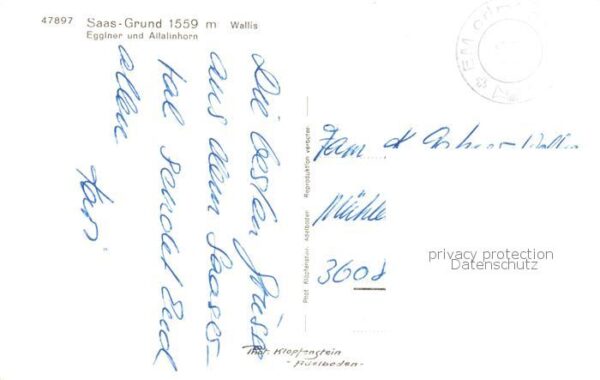 47897 Saas-Grund 1559 m Wallis
Egginer und Allalinhorn
Die besten Grüsse
aus dem Saaser-
tal sendet Euch
allen
Fam
Mühle
3608
Phot. Klopfenstein, Adelboden Reproduktion verboten
Phot. Klopfenstein
- Adelboden -
privacy protection
Datenschutz